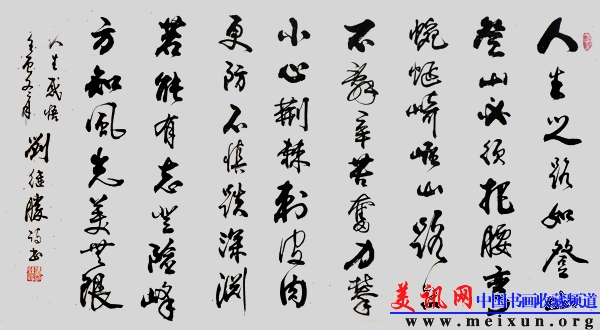 人生之路如登
登山必须把腰弯
蜿蜒崎岖山路
不辞辛苦奮力攀
小心荆棘刺皮肉
更防不慎跌深渊
若能有志登险峰
方知風光美无限
人生感悟
冬月
劉继勝
美讯网 中国书画收藏频道
www.meixun.org